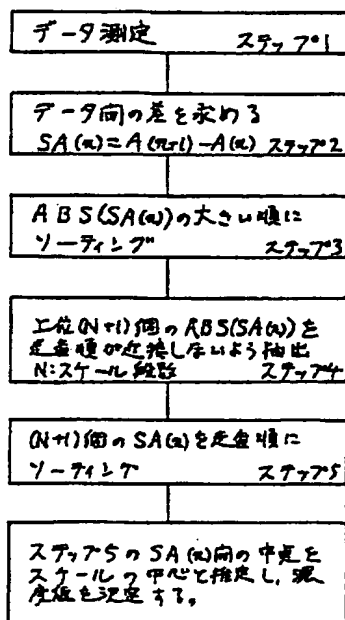 データ測定
ステップ1
データ間の差を求める
SA(n)=A(n+1)-A(n) ステップ2
ABS(SA(n))の大きい順に
ソーティング ステップ3
上位(N+1)個のABS(SA(n))を
走査順が近接しないよう抽出
N:スケール段数 ステップ4
(N+1)個のSA(n)を走査順に
ソーティング ステップ5
ステップ5のSA(n)間の中点を
スケールの中心と推定し、濃
度値を決定する。